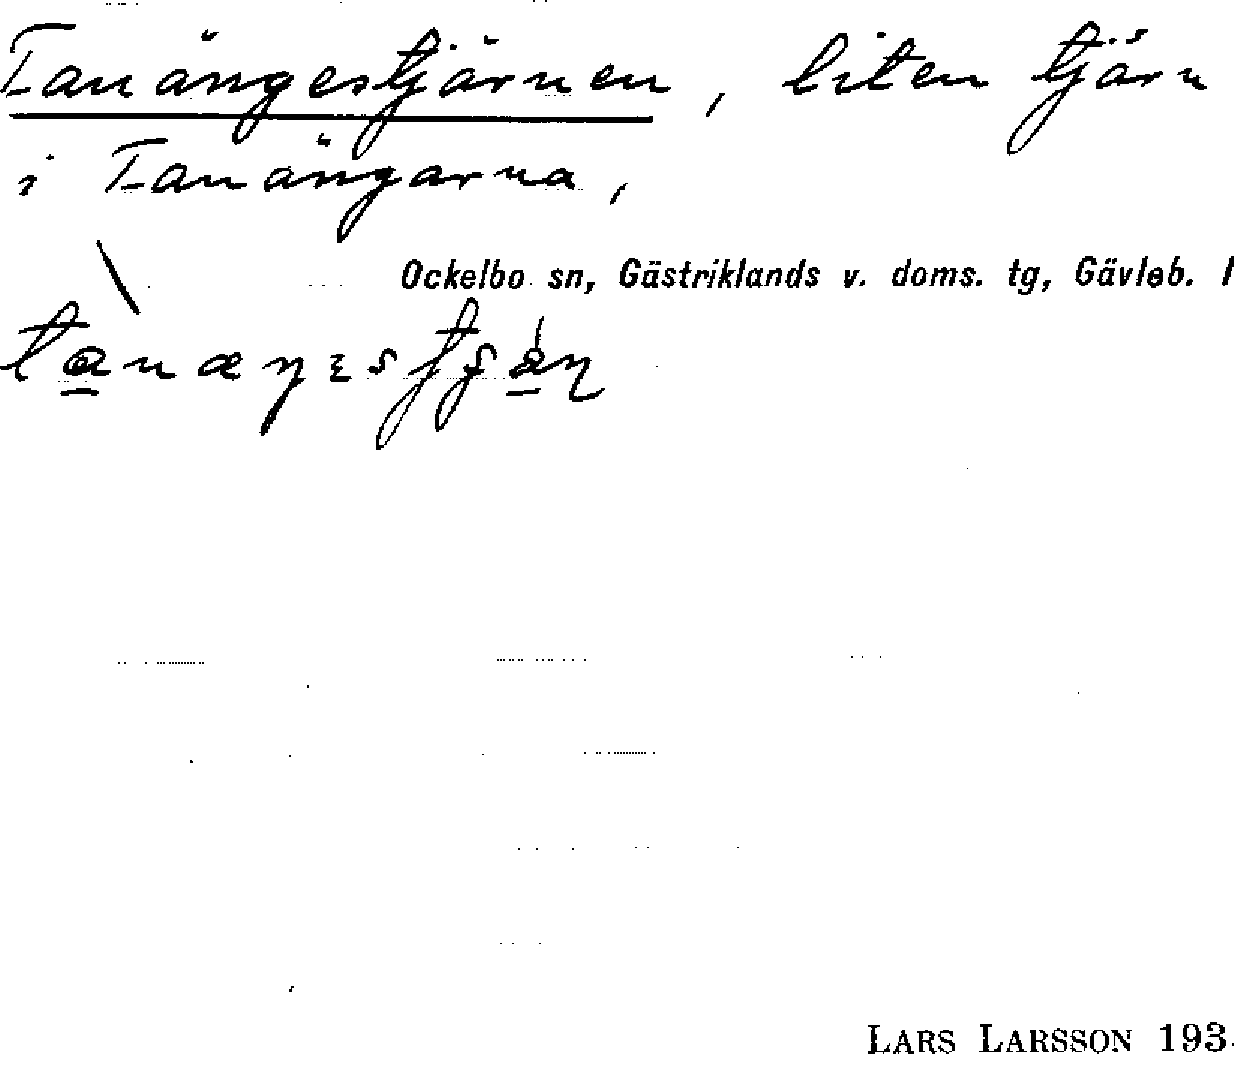 Tanängestjärnen, liten tjärn
i Tanängarna,
Ockelbo sn, Gästriklands v. doms. tg, Gävleb. l
LARS LARSSON 193